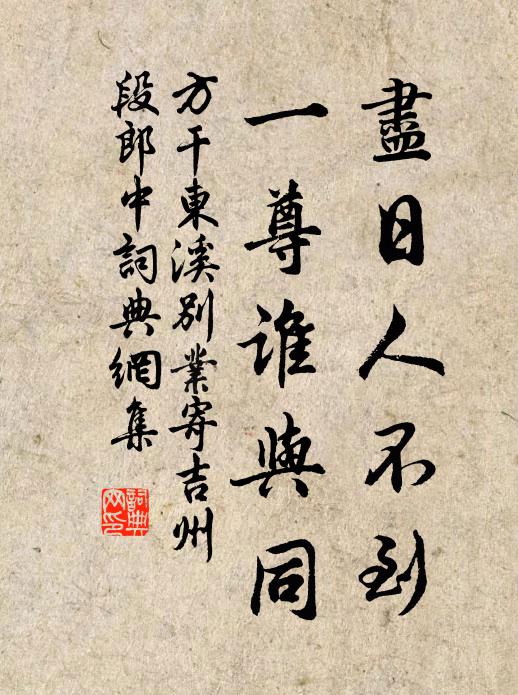 盡日人不到
一尊誰與同
方干東溪別業寄吉州
段郎中詞典網集
詞典
网印